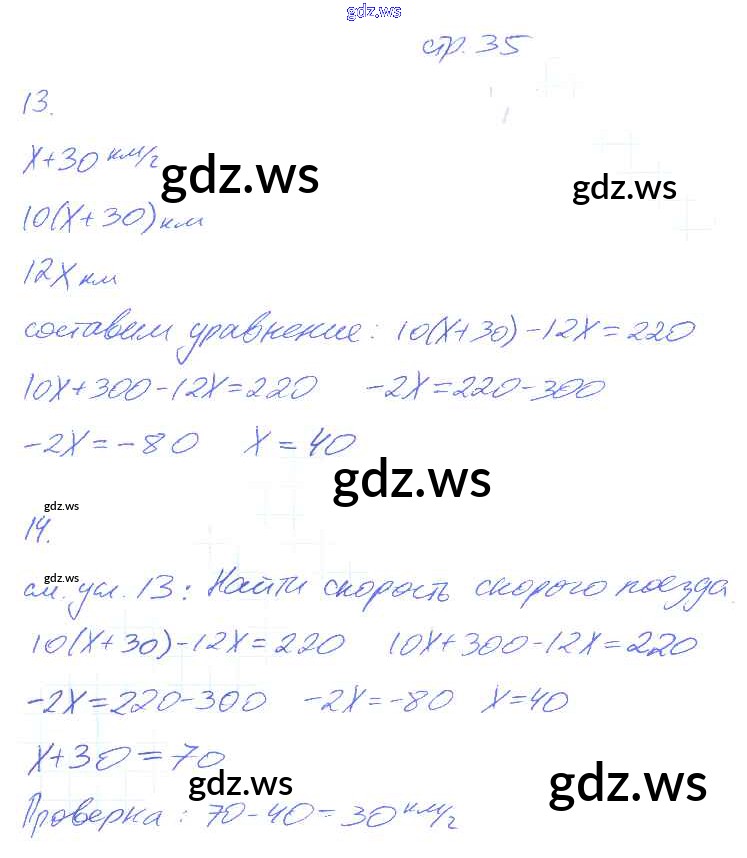 gdz.ws
стр. 35
13.
x+30 км/г
gdz.ws
gdz.ws
10(x+30) км
12x км
составим уравнение: 10(x+30)-12x=220
10x+300-12x=220 -2x=220-300
-2x=-80 x=40
gdz.ws
gdz.ws
14.
gdz.ws
см. усл. 13: Найти скорость скорого поезда.
10(x+30)-12x=220 10x+300-12x=220
-2x=220-300 -2x=-80 x=40
x+30=70
gdz.ws
gdz.ws
Проверка: 70-40=30 км/г